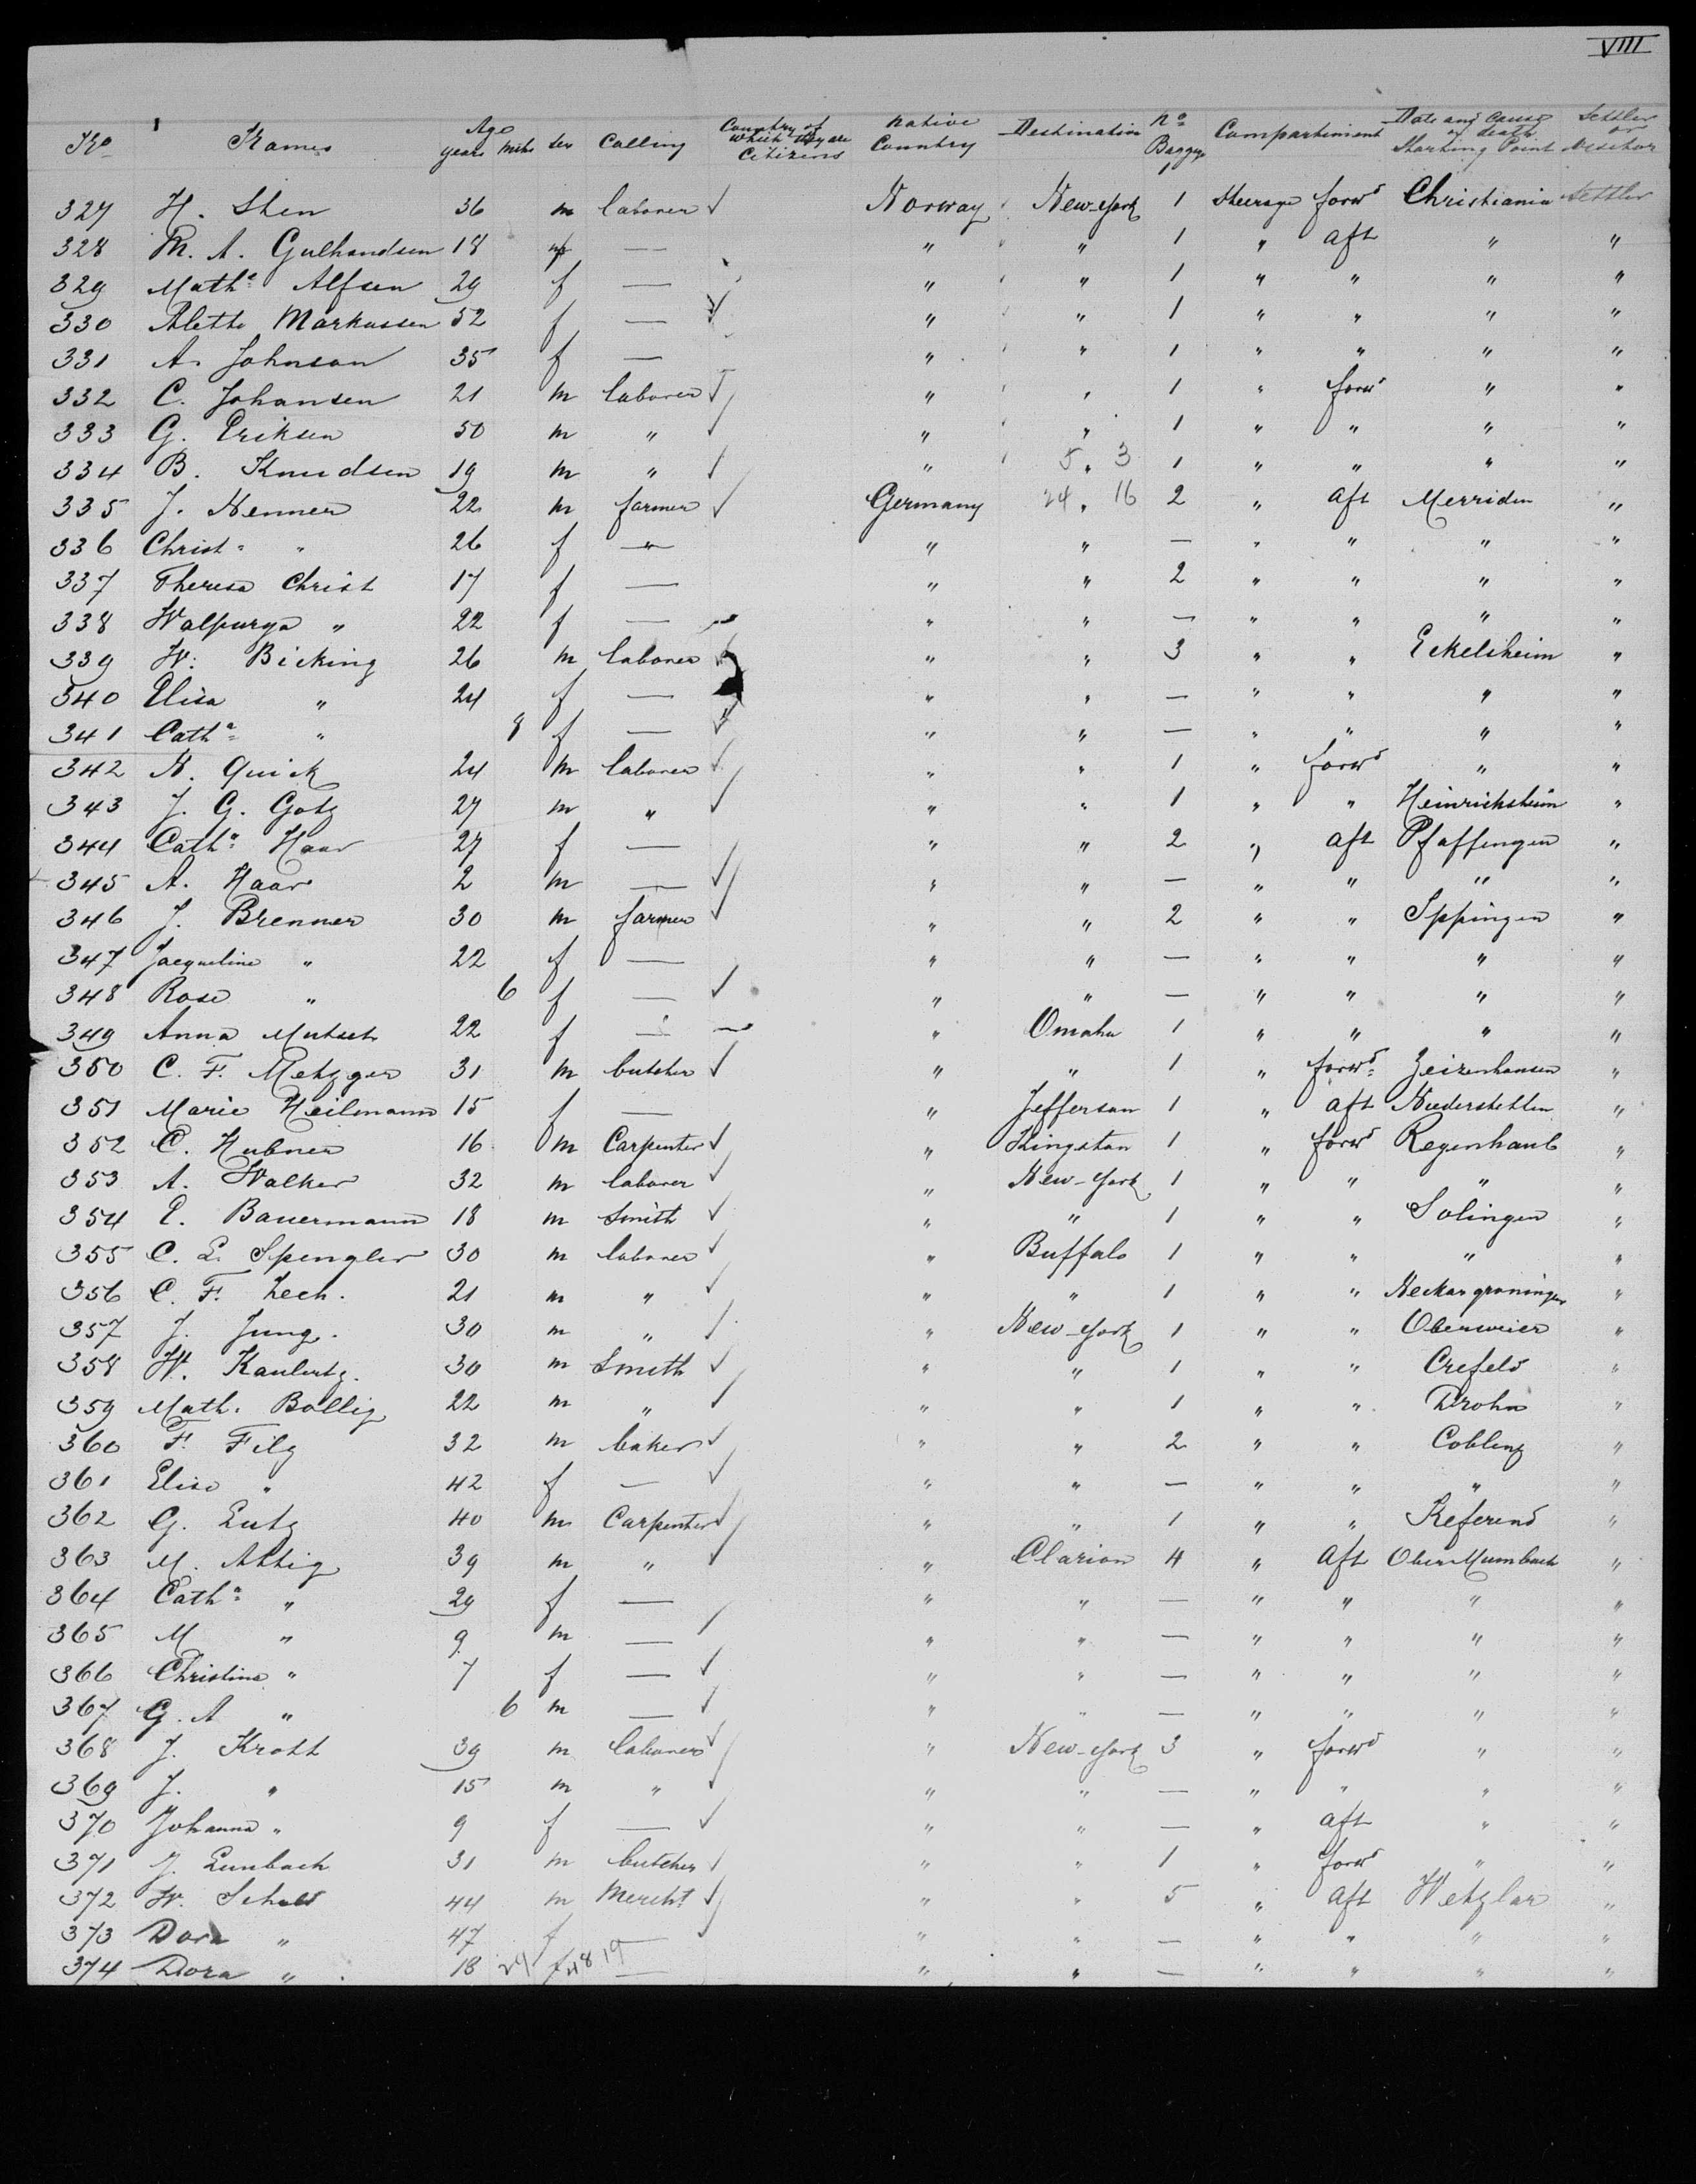 VIII
No Names Age years mths Sex Calling Country of which they are Citizens Native Country Destination No Baggage Compartiment Date and Cause of death Starting Point Settler or
327 H. Sten 36 m laborer ✓ Norway New-York 1 Steerage forwd Christiania Settler
328 M. A. Gulhandsen 18 — " " 1 " aft " "
329 Matha Alfsen 29 f — " " 1 " " " "
330 Aletta Markussen 52 f — ✓ " " 1 " " " "
331 A. Johnson 35 f — " " 1 " " " "
332 C. Johansen 21 m laborer ✓ " " 1 " forwd " "
333 G. Eriksen 50 m " ✓ " " 1 " " " "
334 B. Knudsen 19 m " ✓ " 5 " 3 1 " " " "
335 J. Nenner 22 m farmer ✓ Germany 24 " 16 2 " aft Merriden "
336 Christa " 26 f — " " — " " " "
337 Theresa Christ 17 f — " " 2 " " " "
338 Walpurga " 22 f — " " — " " " "
339 W. Bicking 26 m laborer " " 3 " " Eckelsheim "
340 Elisa " 24 f — " " — " " " "
341 Catha " 8 f — ✓ " " — " " " "
342 N. Quick 24 m laborer ✓ " " 1 " forwd " "
343 J. G. Gotz 27 m " ✓ " " 1 " " Heinrichsheim "
344 Catha Haar 27 f — " " 2 " aft Pfaffengen "
345 A. Haar 2 m — ✓ " " — " " " "
346 J. Brenner 30 m farmer ✓ " " 2 " " Eppingen "
347 Jacqueline " 22 f — " " — " " " "
348 Rosa " 6 f — ✓ " " — " " " "
349 Anna Mutsch 22 f — " Omaha 1 " " " "
350 C. F. Metzger 31 m butcher ✓ " " 1 " forwd Zeizenhausen "
351 Marie Heilmann 15 f — " Jefferson 1 " aft Niederstetten "
352 C. Hubner 16 m Carpenter ✓ " Kingston 1 " forwd Regenhaub "
353 A. Walker 32 m laborer ✓ " New-York 1 " " " "
354 E. Bauermann 18 m Smith ✓ " " 1 " " Solingen "
355 C. L. Spengler 30 m laborer ✓ " Buffalo 1 " " " "
356 C. F. Zech. 21 m " ✓ " " 1 " " Neckargroningen "
357 J. Jung. 30 m " ✓ " New-York 1 " " Oberweier "
358 W. Kaulertz. 30 m Smith ✓ " " 1 " " Crefeld "
359 Math. Bollig 22 m " ✓ " " 1 " " Drohn "
360 F. Filz 32 m baker ✓ " " 2 " " Coblenz "
361 Elise " 42 f — ✓ " " — " " " "
362 G. Lutz 40 m Carpenter ✓ " " 1 " " Referend "
363 M. Attig 39 m " ✓ " Clarion 4 " aft Ober Mumbach "
364 Catha " 29 f — " " — " " " "
365 M " 9 m — ✓ " " — " " " "
366 Christina " 7 f — ✓ " " — " " " "
367 G. A " 6 m — ✓ " " — " " " "
368 J. Kroth 39 m laborer ✓ " New-York 3 " forwd " "
369 J. " 15 m " ✓ " " — " " " "
370 Johanna " 9 f — ✓ " " — " aft " "
371 J. Lunbach 31 m butcher ✓ " " 1 " forwd " "
372 W. Schuld 44 m Mercht ✓ " " 5 " aft Wetzlar "
373 Dora " 47 f — ✓ " " — " " " "
374 Dora " 18 29 f 48 19 — " " — " " " "